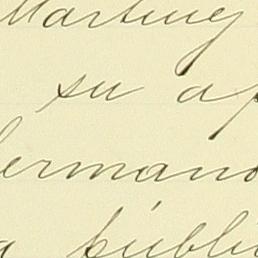 Martiney
su ap
hermano
a públi